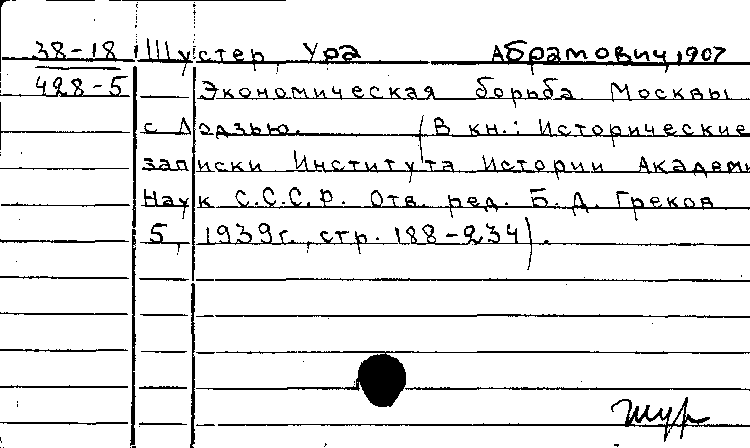 38-18 Шустер, Ура Абрамович, 1907
428-5 Экономическая борьба Москвы
с Лодзью. (В кн.: Исторические
записки Института Истории Академи
Наук С.С.С.Р. Отв. ред. Б. Д. Греков
5, 1939г., стр. 188-234).